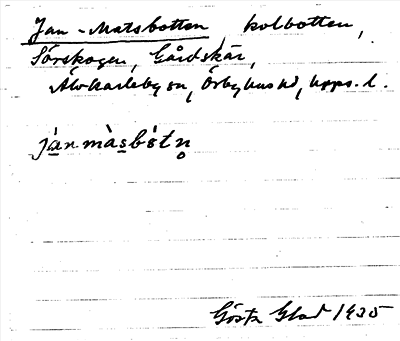 Jan-Matsbotten, kolbotten,
Sörskogen, Gårdskär,
Älvkarleby sn, Örbyhus hd, Upps. l.
jànmàsbòtn̥
Gösta Glad 1935